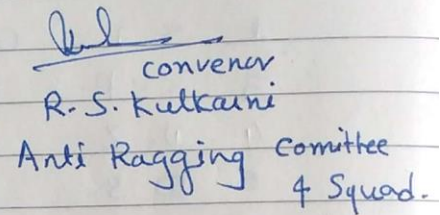 convenor
R. S. Kulkarni
Anti Ragging Comittee
& Squad.